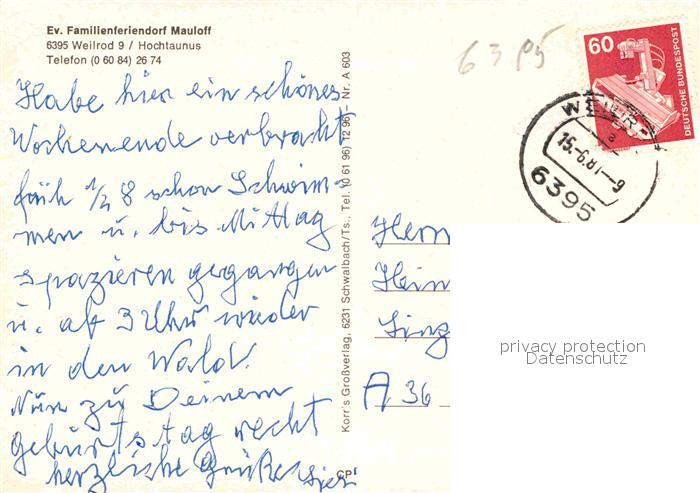 Ev. Familienferiendorf Mauloff
6395 Weilrod 9 / Hochtaunus
Telefon (0 60 84) 26 74
Habe hier ein schönes
Wochenende verbracht,
früh 1/2 8 schon Schwim-
men u. bis Mittag
spazieren gegangen
u. ab 3 Uhr wieder
in den Wald.
Nun zu Deinem
geburtstag recht
herzliche Grüße
Korr's Großverlag, 6231 Schwalbach/Ts., Tel. (0 61 96) 12 96 – Nr. A 603
CP
60
DEUTSCHE BUNDESPOST
WEILR
a
15.-6.81-9
6395
Herrn
Hein
A 36
privacy protection
Datenschutz